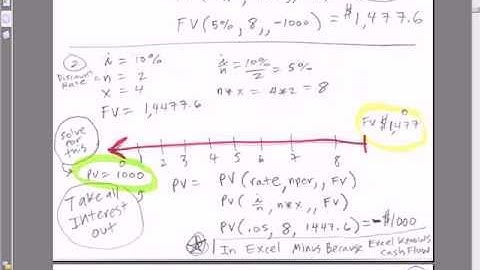 FV(5%, 8,, -1000) = $1,477.6
② i = 10%
Discount Rate = n = 2
x = 4
FV = 1,4477.6
i/n = 10%/2 = 5%
n*x = 4*2 = 8
Solve for this
FV $1,477
0 1 2 3 4 5 6 7 8
PV = 1000
Take all Interest out
PV = PV(rate, nper,, FV)
PV(i/n, n*x,, FV)
PV(.05, 8, 1447.6) = -$1000
In Excel Minus Because Excel knows cash flow